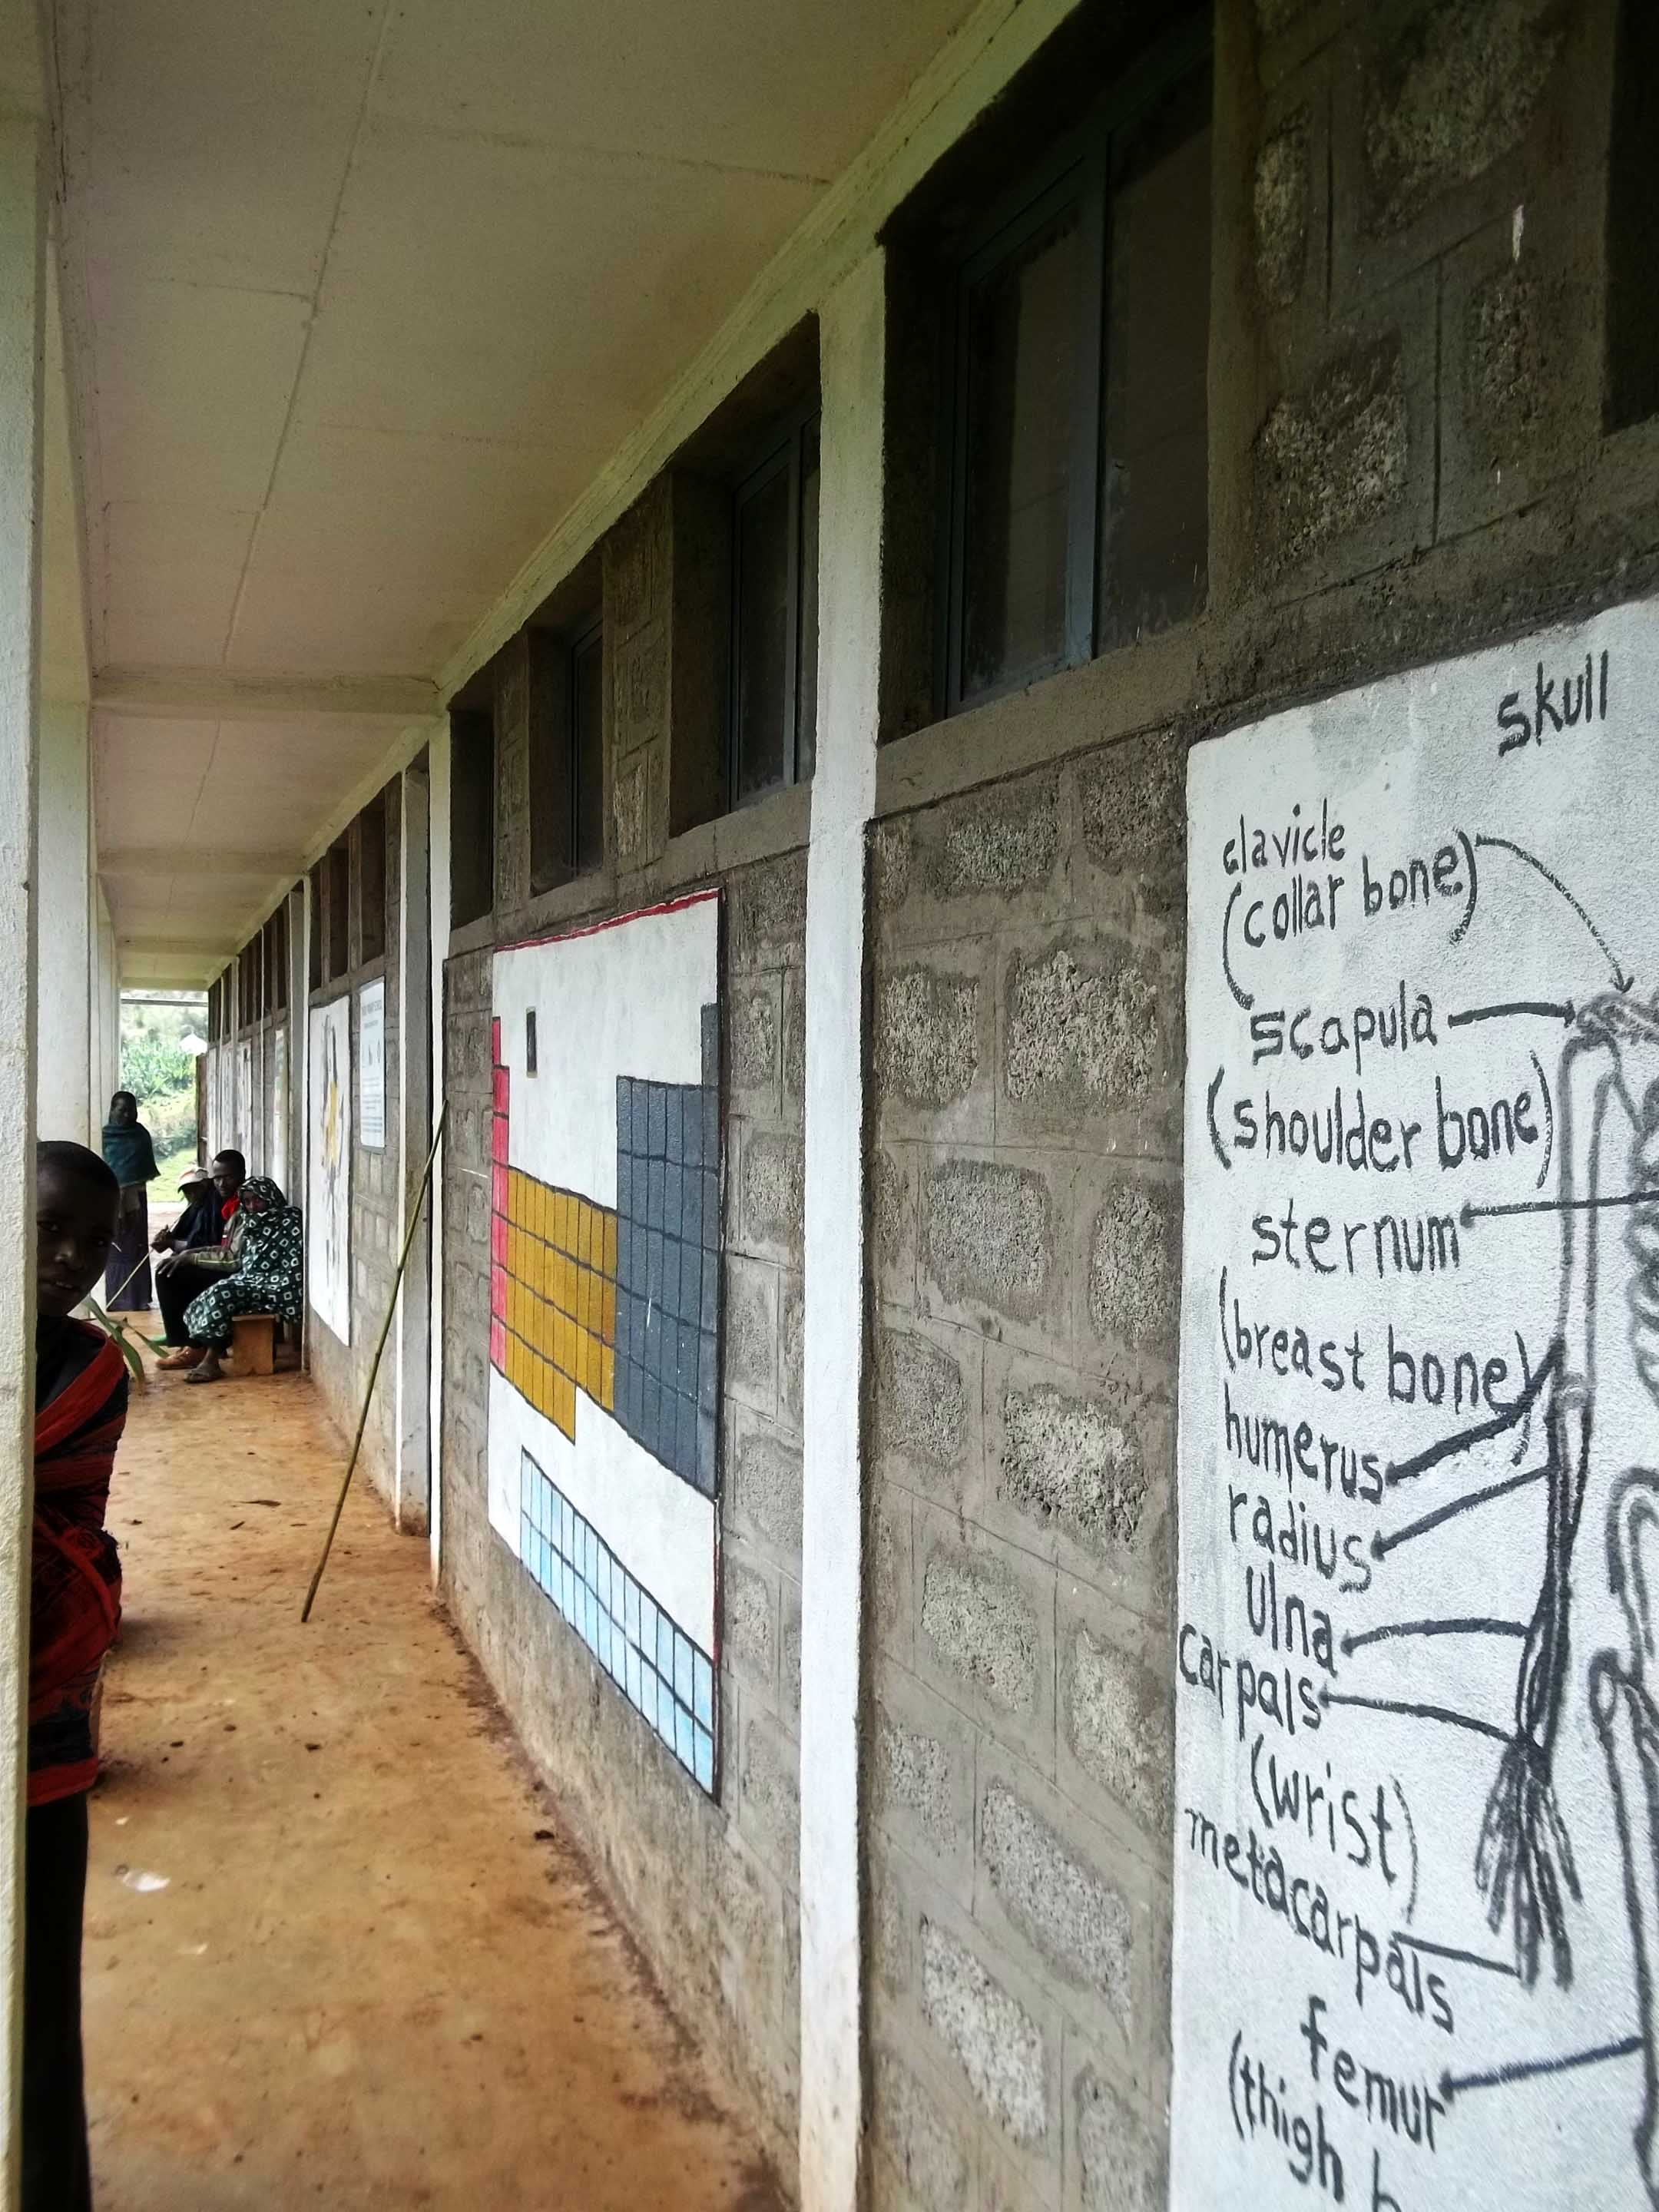 skull
clavicle
(collar bone)
scapula
(shoulder bone)
sternum
(breast bone)
humerus
radius
ulna
carpals
(wrist)
metacarpals
femur
(thigh b